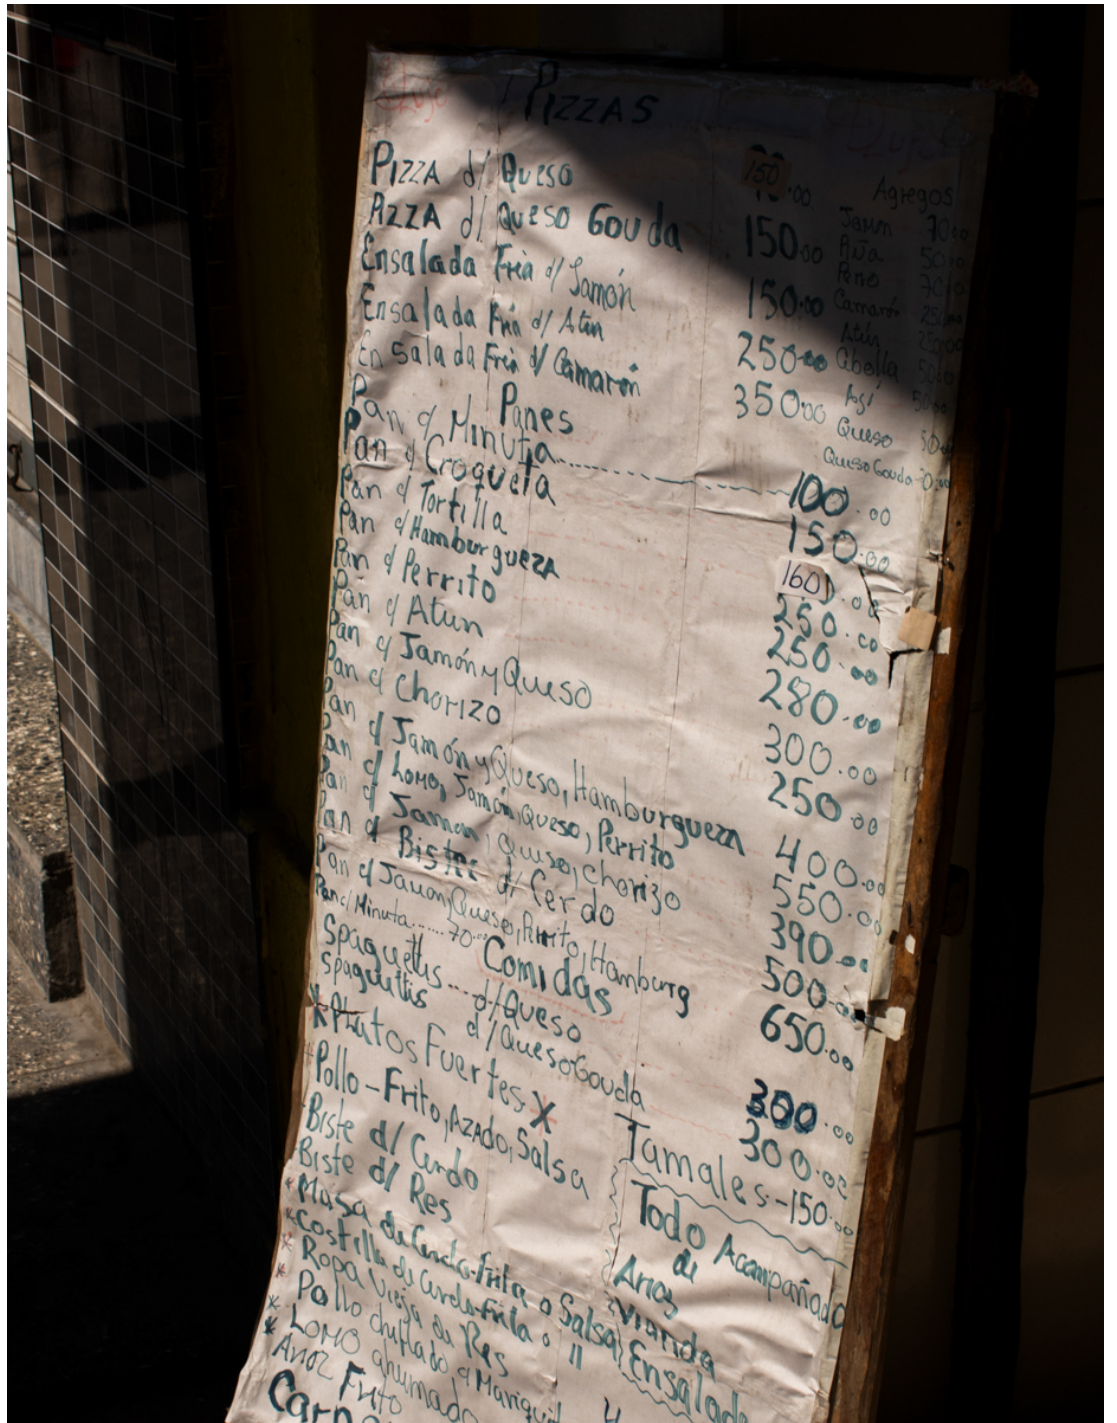 PIZZAS
PIZZA d/ Queso 150.00
PIZZA d/ Queso Gouda 150.00
Ensalada Fria d/ Jamón 150.00
Ensalada Fria d/ Atún 250.00
Ensalada Fria d/ Camarón 350.00
Agregos
Jamón 70.00
Piña 50.00
Perro 70.00
Camarón
Atún
Cebolla 50.00
Ají 50.00
Queso
Queso Gouda
Panes
Pan c/ Minuta 100.00
Pan c/ Croqueta 150.00
Pan c/ Tortilla 160
Pan c/ Hamburgueza 250.00
Pan c/ Perrito 250.00
Pan c/ Atun 280.00
Pan c/ Jamón y Queso 300.00
Pan c/ Chorizo 250.00
Pan c/ Jamón y Queso, Hamburgueza 400.00
Pan c/ Lomo, Jamón, Queso, Perrito 550.00
Pan c/ Jamon, Queso, chorizo 390.00
Pan c/ Bistec d/ Cerdo 500.00
Pan c/ Jamon, Queso, Perrito, Hamburg 650.00
Pan c/ Minuta...... 70.00
Comidas
Spaguettis.... d/Queso 300.00
Spaguettis d/Queso Gouda 300.00
* Platos Fuertes X
Pollo - Frito, Azado, Salsa
Biste d/ Cerdo
Biste d/ Res
* Masa de Cerdo-Frita o Salsa
* Costilla de Cerdo-Frita o "
* Ropa Vieja de Res
Pollo
* Lomo ahumado
* Arroz Frito
Tamales - 150.00
Todo Acompañado
de
Arroz
Vianda
Ensalada